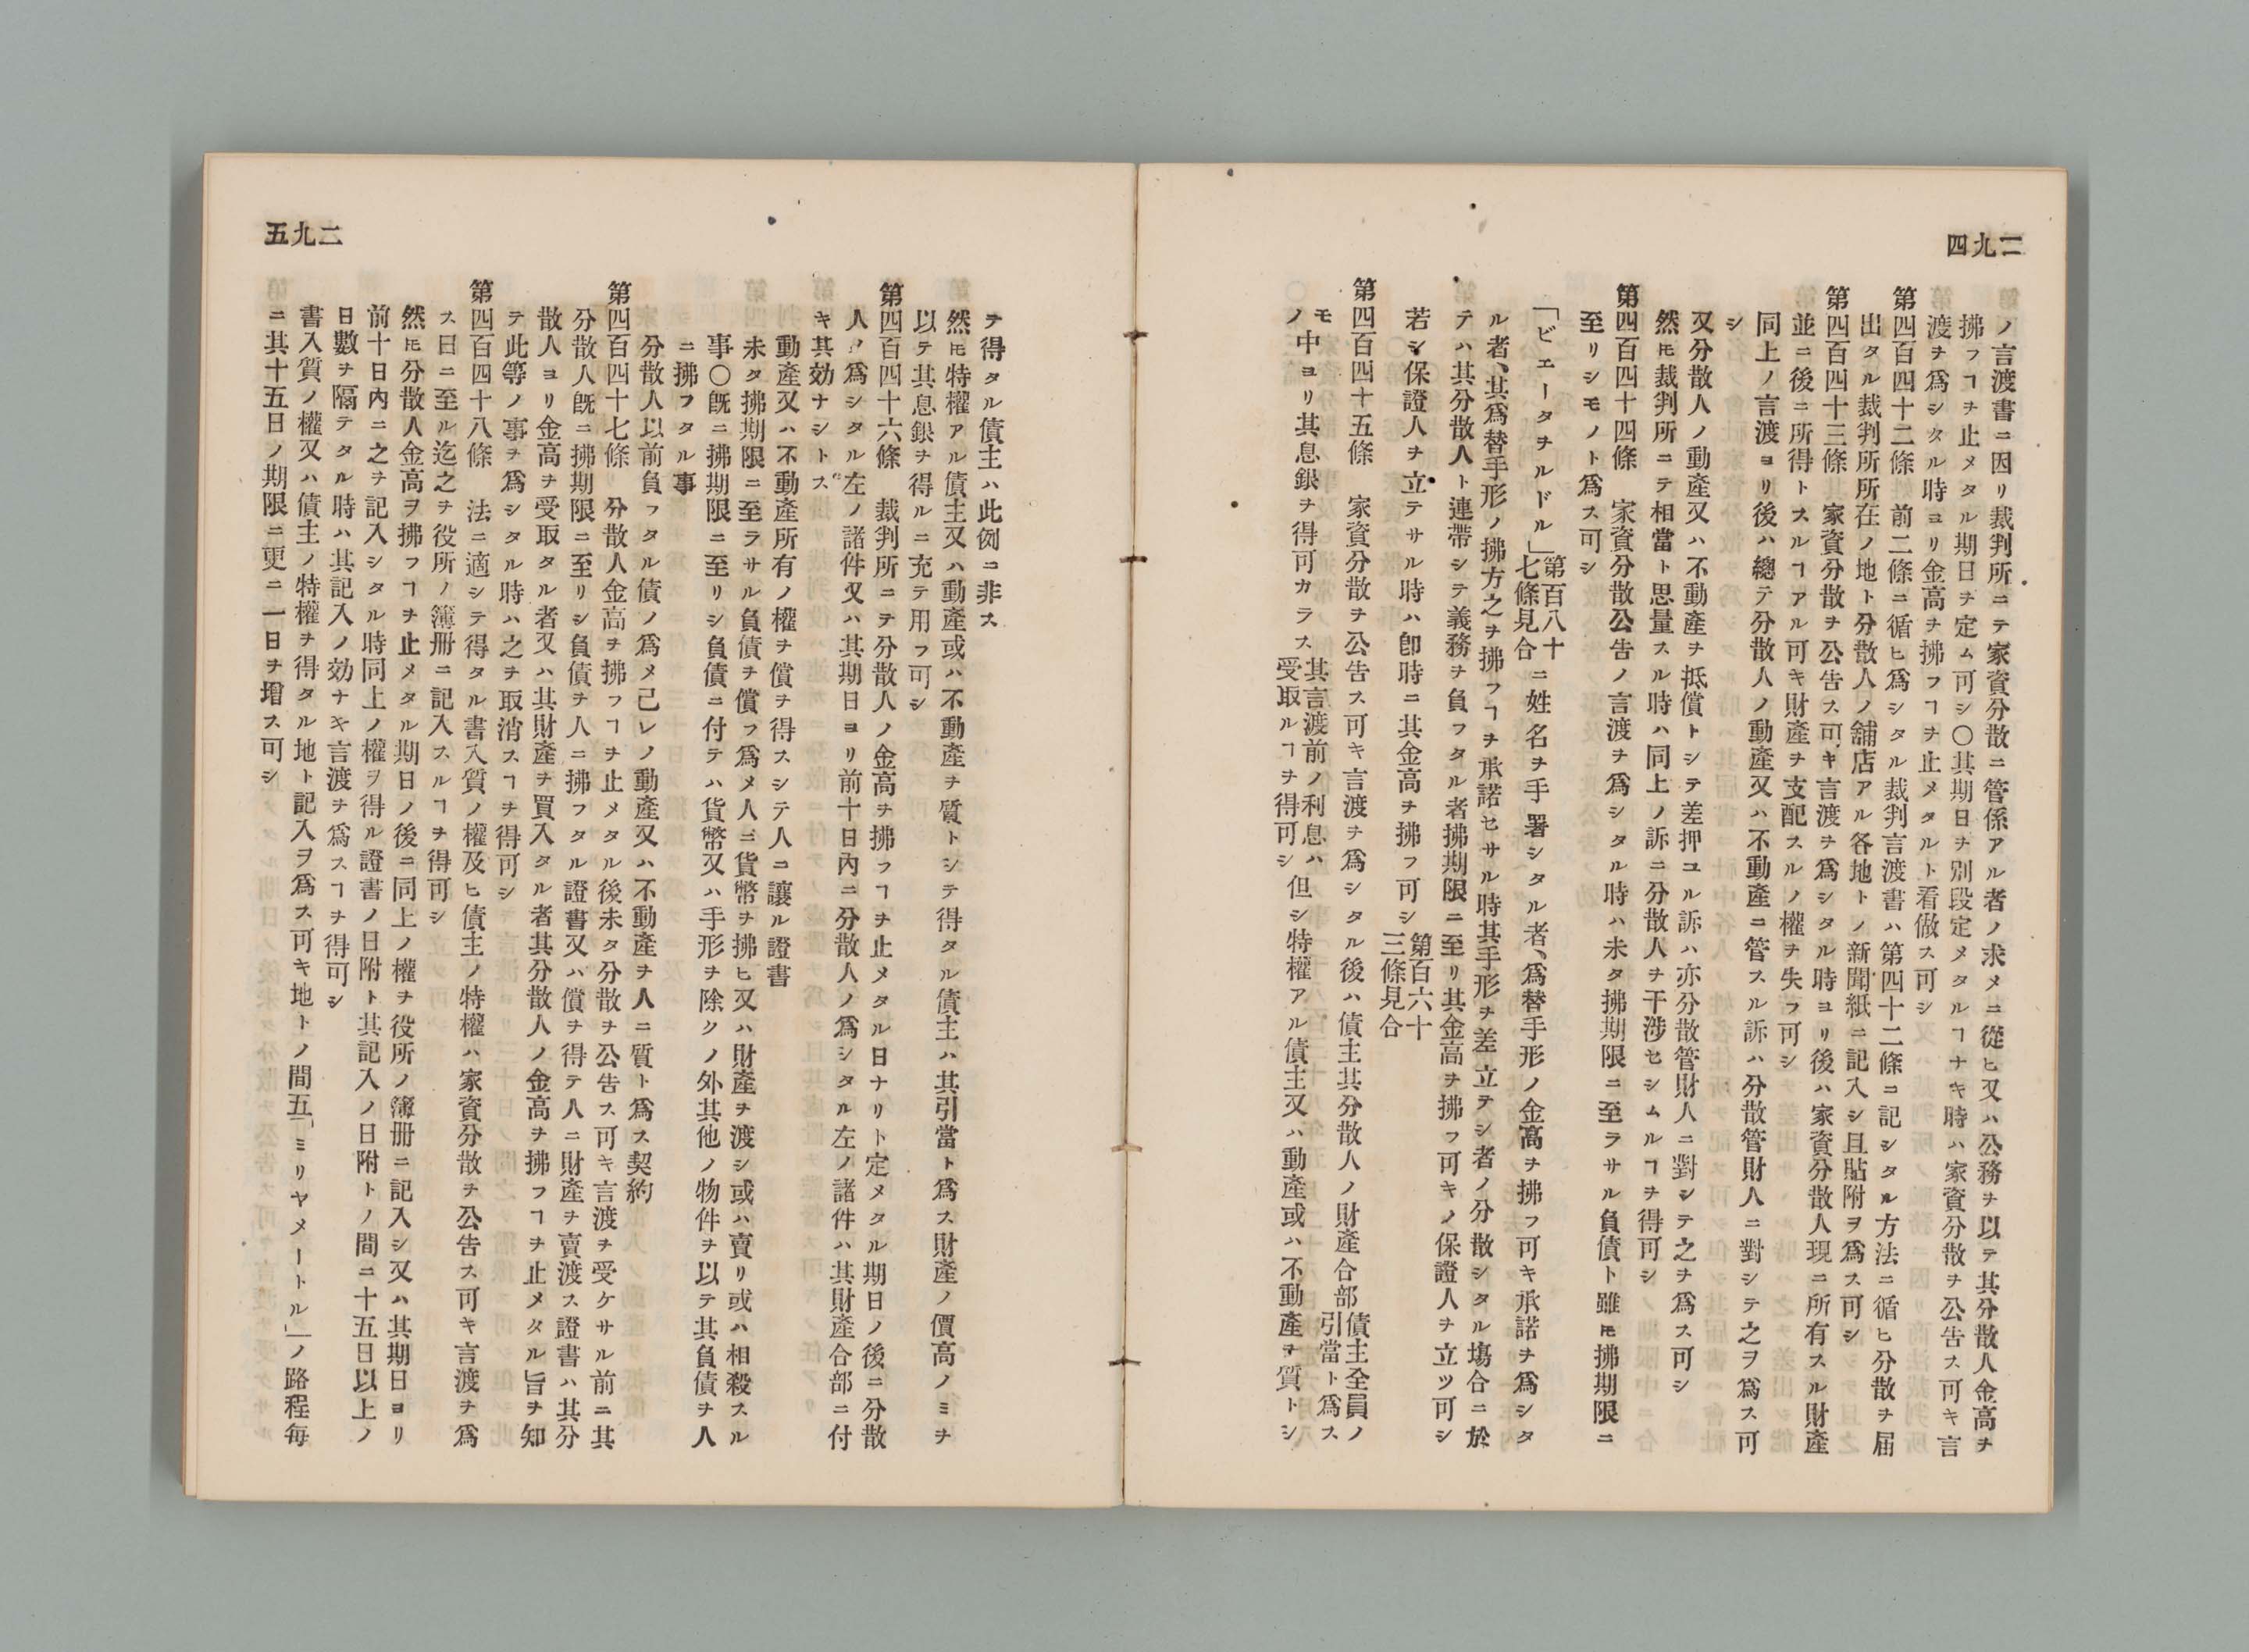 二九四
ノ言渡書ニ因リ裁判所ニテ家資分散ニ管係アル者ノ求メニ從ヒ又ハ公務ヲ以テ其分散人金高ヲ
拂フヿヲ止メタル期日ヲ定ム可シ〇其期日ヲ別段定メタルヿナキ時ハ家資分散ヲ公告ス可キ言
渡ヲ爲シタル時ヨリ金高ヲ拂フヿヲ止メタルト看做ス可シ
第四百四十二條 前二條ニ循ヒ爲シタル裁判言渡書ハ第四十二條ニ記シタル方法ニ循ヒ分散ヲ屆
出タル裁判所所在ノ地ト分散人ノ舖店アル各地トノ新聞紙ニ記入シ且貼附ヲ爲ス可シ
第四百四十三條 家資分散ヲ公告ス可キ言渡ヲ爲シタル時ヨリ後ハ家資分散人現ニ所有スル財產
並ニ後ニ所得トスルヿアル可キ財產ヲ支配スルノ權ヲ失フ可シ
同上ノ言渡ヨリ後ハ總テ分散人ノ動產又ハ不動產ニ管スル訴ハ分散管財人ニ對シテ之ヲ爲ス可
シ
又分散人ノ動產又ハ不動產ヲ抵償トシテ差押ユル訴ハ亦分散管財人ニ對シテ之ヲ爲ス可シ
然ㇳモ裁判所ニテ相當ト思量スル時ハ同上ノ訴ニ分散人ヲ干涉セシムルヿヲ得可シ
第四百四十四條 家資分散公告ノ言渡ヲ爲シタル時ハ未タ拂期限ニ至ラサル負債ト雖ㇳモ拂期限ニ
至リシモノト爲ス可シ
「ビエータヲルドル」第百八十七條見合ニ姓名ヲ手署シタル者、爲替手形ノ金高ヲ拂フ可キ承諾ヲ爲シタ
ル者、其爲替手形ノ拂方之ヲ拂フヿヲ承諾セサル時其手形ヲ差立テシ者ノ分散シタル塲合ニ於
テハ其分散人ト連帶シテ義務ヲ負フタル者拂期限ニ至リ其金高ヲ拂フ可キノ保證人ヲ立ツ可シ
若シ保證人ヲ立テサル時ハ卽時ニ其金高ヲ拂フ可シ第百六十三條見合
第四百四十五條 家資分散ヲ公告ス可キ言渡ヲ爲シタル後ハ債主其分散人ノ財產合部債主全員ノ引當ト爲ス
モノ中ヨリ其息銀ヲ得可カラス其言渡前ノ利息ハ受取ルヿヲ得可シ但シ特權アル債主又ハ動產或ハ不動產ヲ質トシ
二九五
テ得タル債主ハ此例ニ非ス
然ㇳモ特權アル債主又ハ動產或ハ不動產ヲ質トシテ得タル債主ハ其引當ト爲ス財產ノ價高ノミヲ
以テ其息銀ヲ得ルニ充テ用フ可シ
第四百四十六條 裁判所ニテ分散人ノ金高ヲ拂フヿヲ止メタル日ナリト定メタル期日ノ後ニ分散
人ノ爲シタル左ノ諸件又ハ其期日ヨリ前十日內ニ分散人ノ爲シタル左ノ諸件ハ其財產合部ニ付
キ其効ナシトス
動產又ハ不動產所有ノ權ヲ償ヲ得スシテ人ニ讓ル證書
未タ拂期限ニ至ラサル負債ヲ償フ爲メ人ニ貨幣ヲ拂ヒ又ハ財產ヲ渡シ或ハ賣リ或ハ相殺スル
事〇旣ニ拂期限ニ至リシ負債ニ付テハ貨幣又ハ手形ヲ除クノ外其他ノ物件ヲ以テ其負債ヲ人
ニ拂フタル事
分散人以前負フタル債ノ爲メ己レノ動產又ハ不動產ヲ人ニ質ト爲ス契約
第四百四十七條 分散人金高ヲ拂フヿヲ止メタル後未タ分散ヲ公告ス可キ言渡ヲ受ケサル前ニ其
分散人旣ニ拂期限ニ至リシ負債ヲ人ニ拂フタル證書又ハ償ヲ得テ人ニ財產ヲ賣渡ス證書ハ其分
散人ヨリ金高ヲ受取タル者又ハ其財產ヲ買入タル者其分散人ノ金高ヲ拂フヿヲ止メタル旨ヲ知
テ此等ノ事ヲ爲シタル時ハ之ヲ取消スヿヲ得可シ
第四百四十八條 法ニ適シテ得タル書入質ノ權及ヒ債主ノ特權ハ家資分散ヲ公告ス可キ言渡ヲ爲
ス日ニ至ル迄之ヲ役所ノ簿冊ニ記入スルヿヲ得可シ
然ㇳモ分散人金高ヲ拂フヿヲ止メタル期日ノ後ニ同上ノ權ヲ役所ノ簿冊ニ記入シ又ハ其期日ヨリ
前十日內ニ之ヲ記入シタル時同上ノ權ヲ得ル證書ノ日附ト其記入ノ日附トノ間ニ十五日以上ノ
日數ヲ隔テタル時ハ其記入ノ効ナキ言渡ヲ爲スヿヲ得可シ
書入質ノ權又ハ債主ノ特權ヲ得タル地ト記入ヲ爲ス可キ地トノ間五「ミリヤメートル」ノ路程每
ニ其十五日ノ期限ニ更ニ一日ヲ增ス可シ